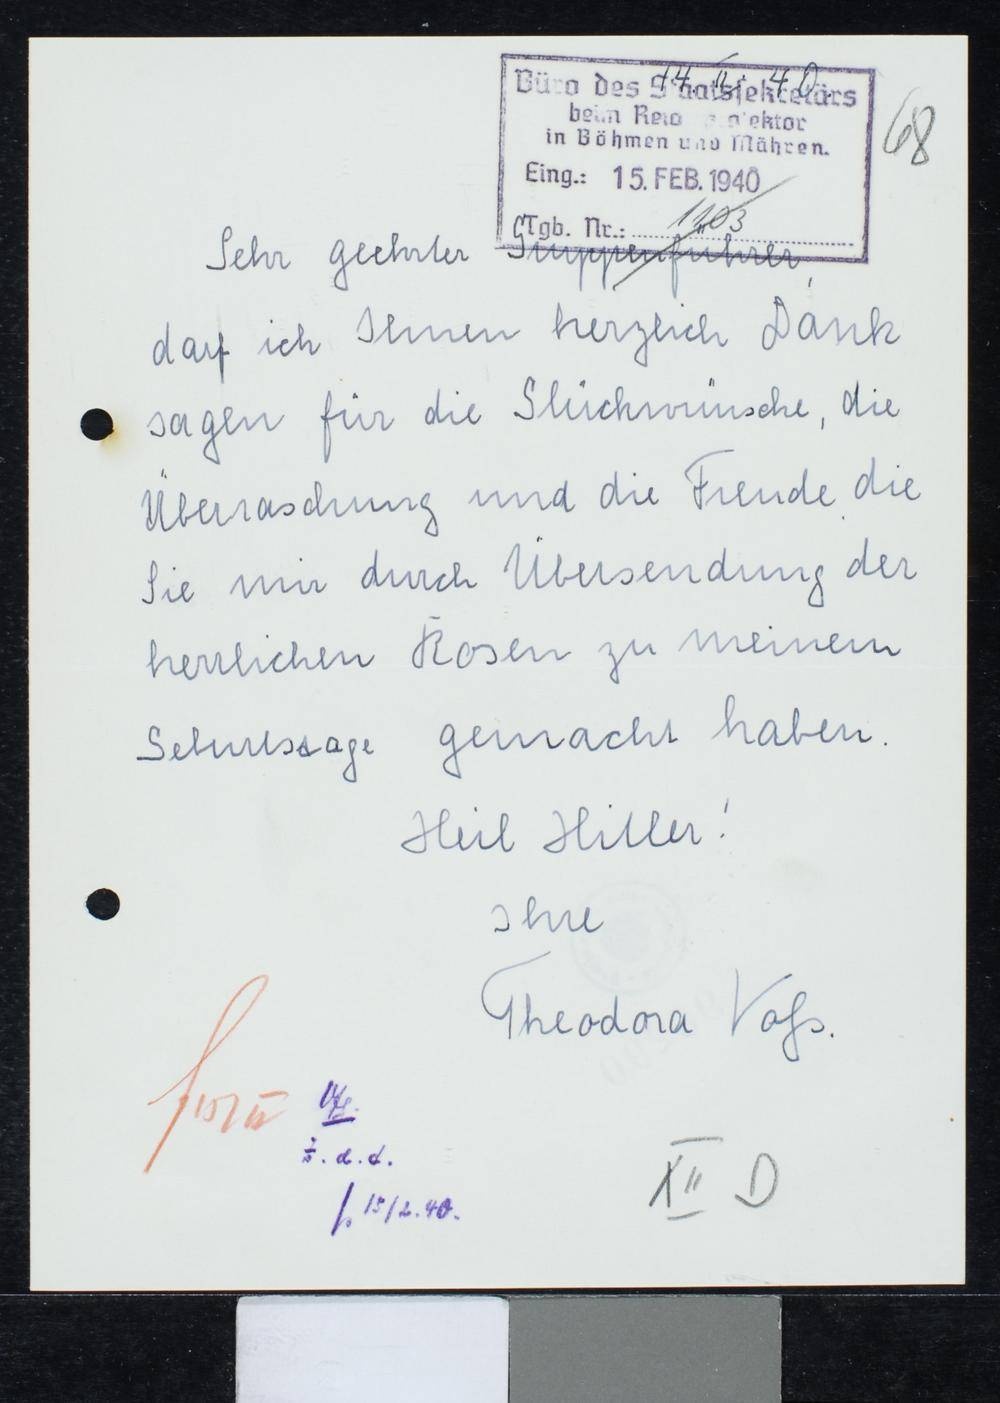 14. II. 40.
Büro des Staatssekretärs
beim Reichsprotektor
in Böhmen und Mähren.
68
Eing.: 15. FEB. 1940
Tgb. Nr.: 1203
Sehr geehrter Gruppenführer,
darf ich Ihnen herzlich Dank
sagen für die Glückwünsche, die
Überraschung und die Freude, die
Sie mir durch Übersendung der
herrlichen Rosen zu meinem
Geburtstage gemacht haben.
Heil Hitler!
Ihre
Theodora Voß.
z. d. A.
15/2.40.
XII D